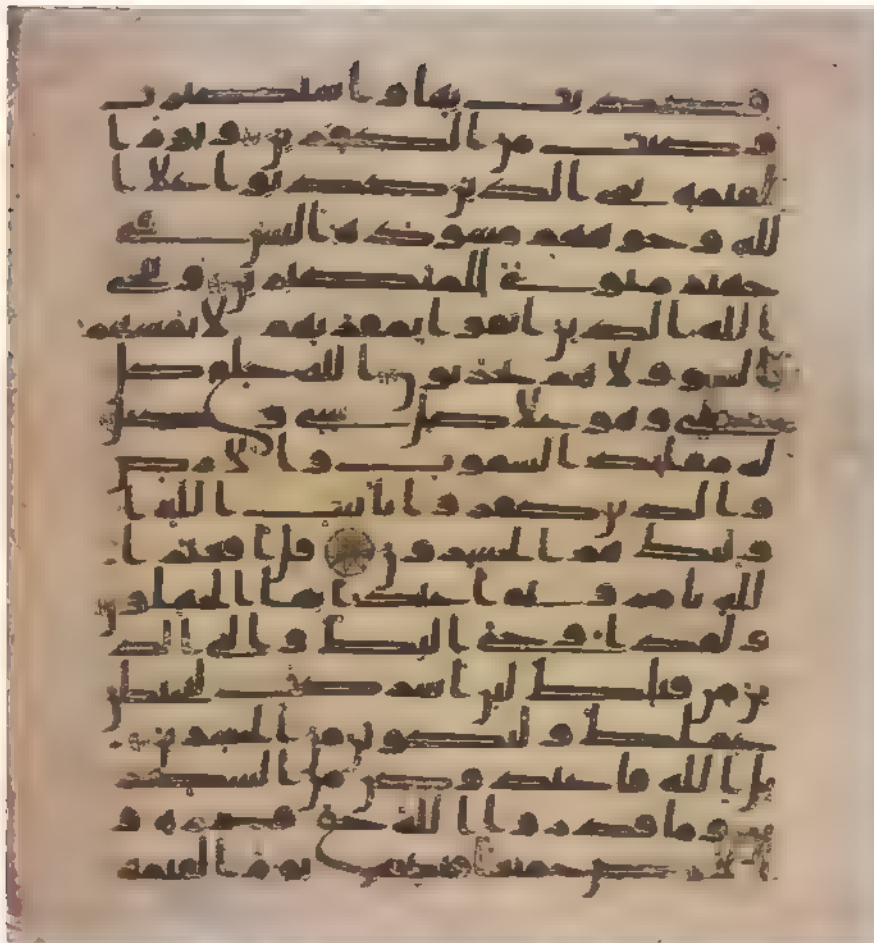 فكذبت بها واستكبرت
وكنت من الكفرين ويوم ا
لقيمة ترى الذين كذبوا على ا
لله وجوههم مسودة اليس في
جهنم مثوى للمتكبرين وينجي
الله الذين اتقوا بمفازتهم لا يمسهم
السوء ولا هم يحزنون الله خلق كل
شيء وهو على كل شيء وكيل
له مقليد السموت والارض
والذين كفروا بايت الله ا
ولئك هم الخسرون قل افغير ا
لله تامروني اعبد ايها الجهلون
ولقد اوحي اليك والى الذ
ين من قبلك لئن اشركت ليحبطن
عملك ولتكونن من الخسرين
بل الله فاعبد وكن من الشكر
ين وما قدروا الله حق قدره و
الارض جميعا قبضته يوم القيمة